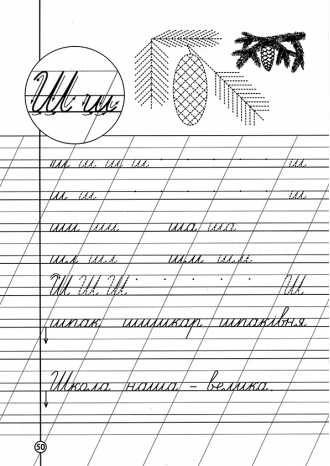 Ш ш
ш ш ш ш ш
ш ш ш
ши ши ша ша
шк шк
Ш Ш Ш Ш
шпак шишкар шпаківня
Школа наша – велика.
50